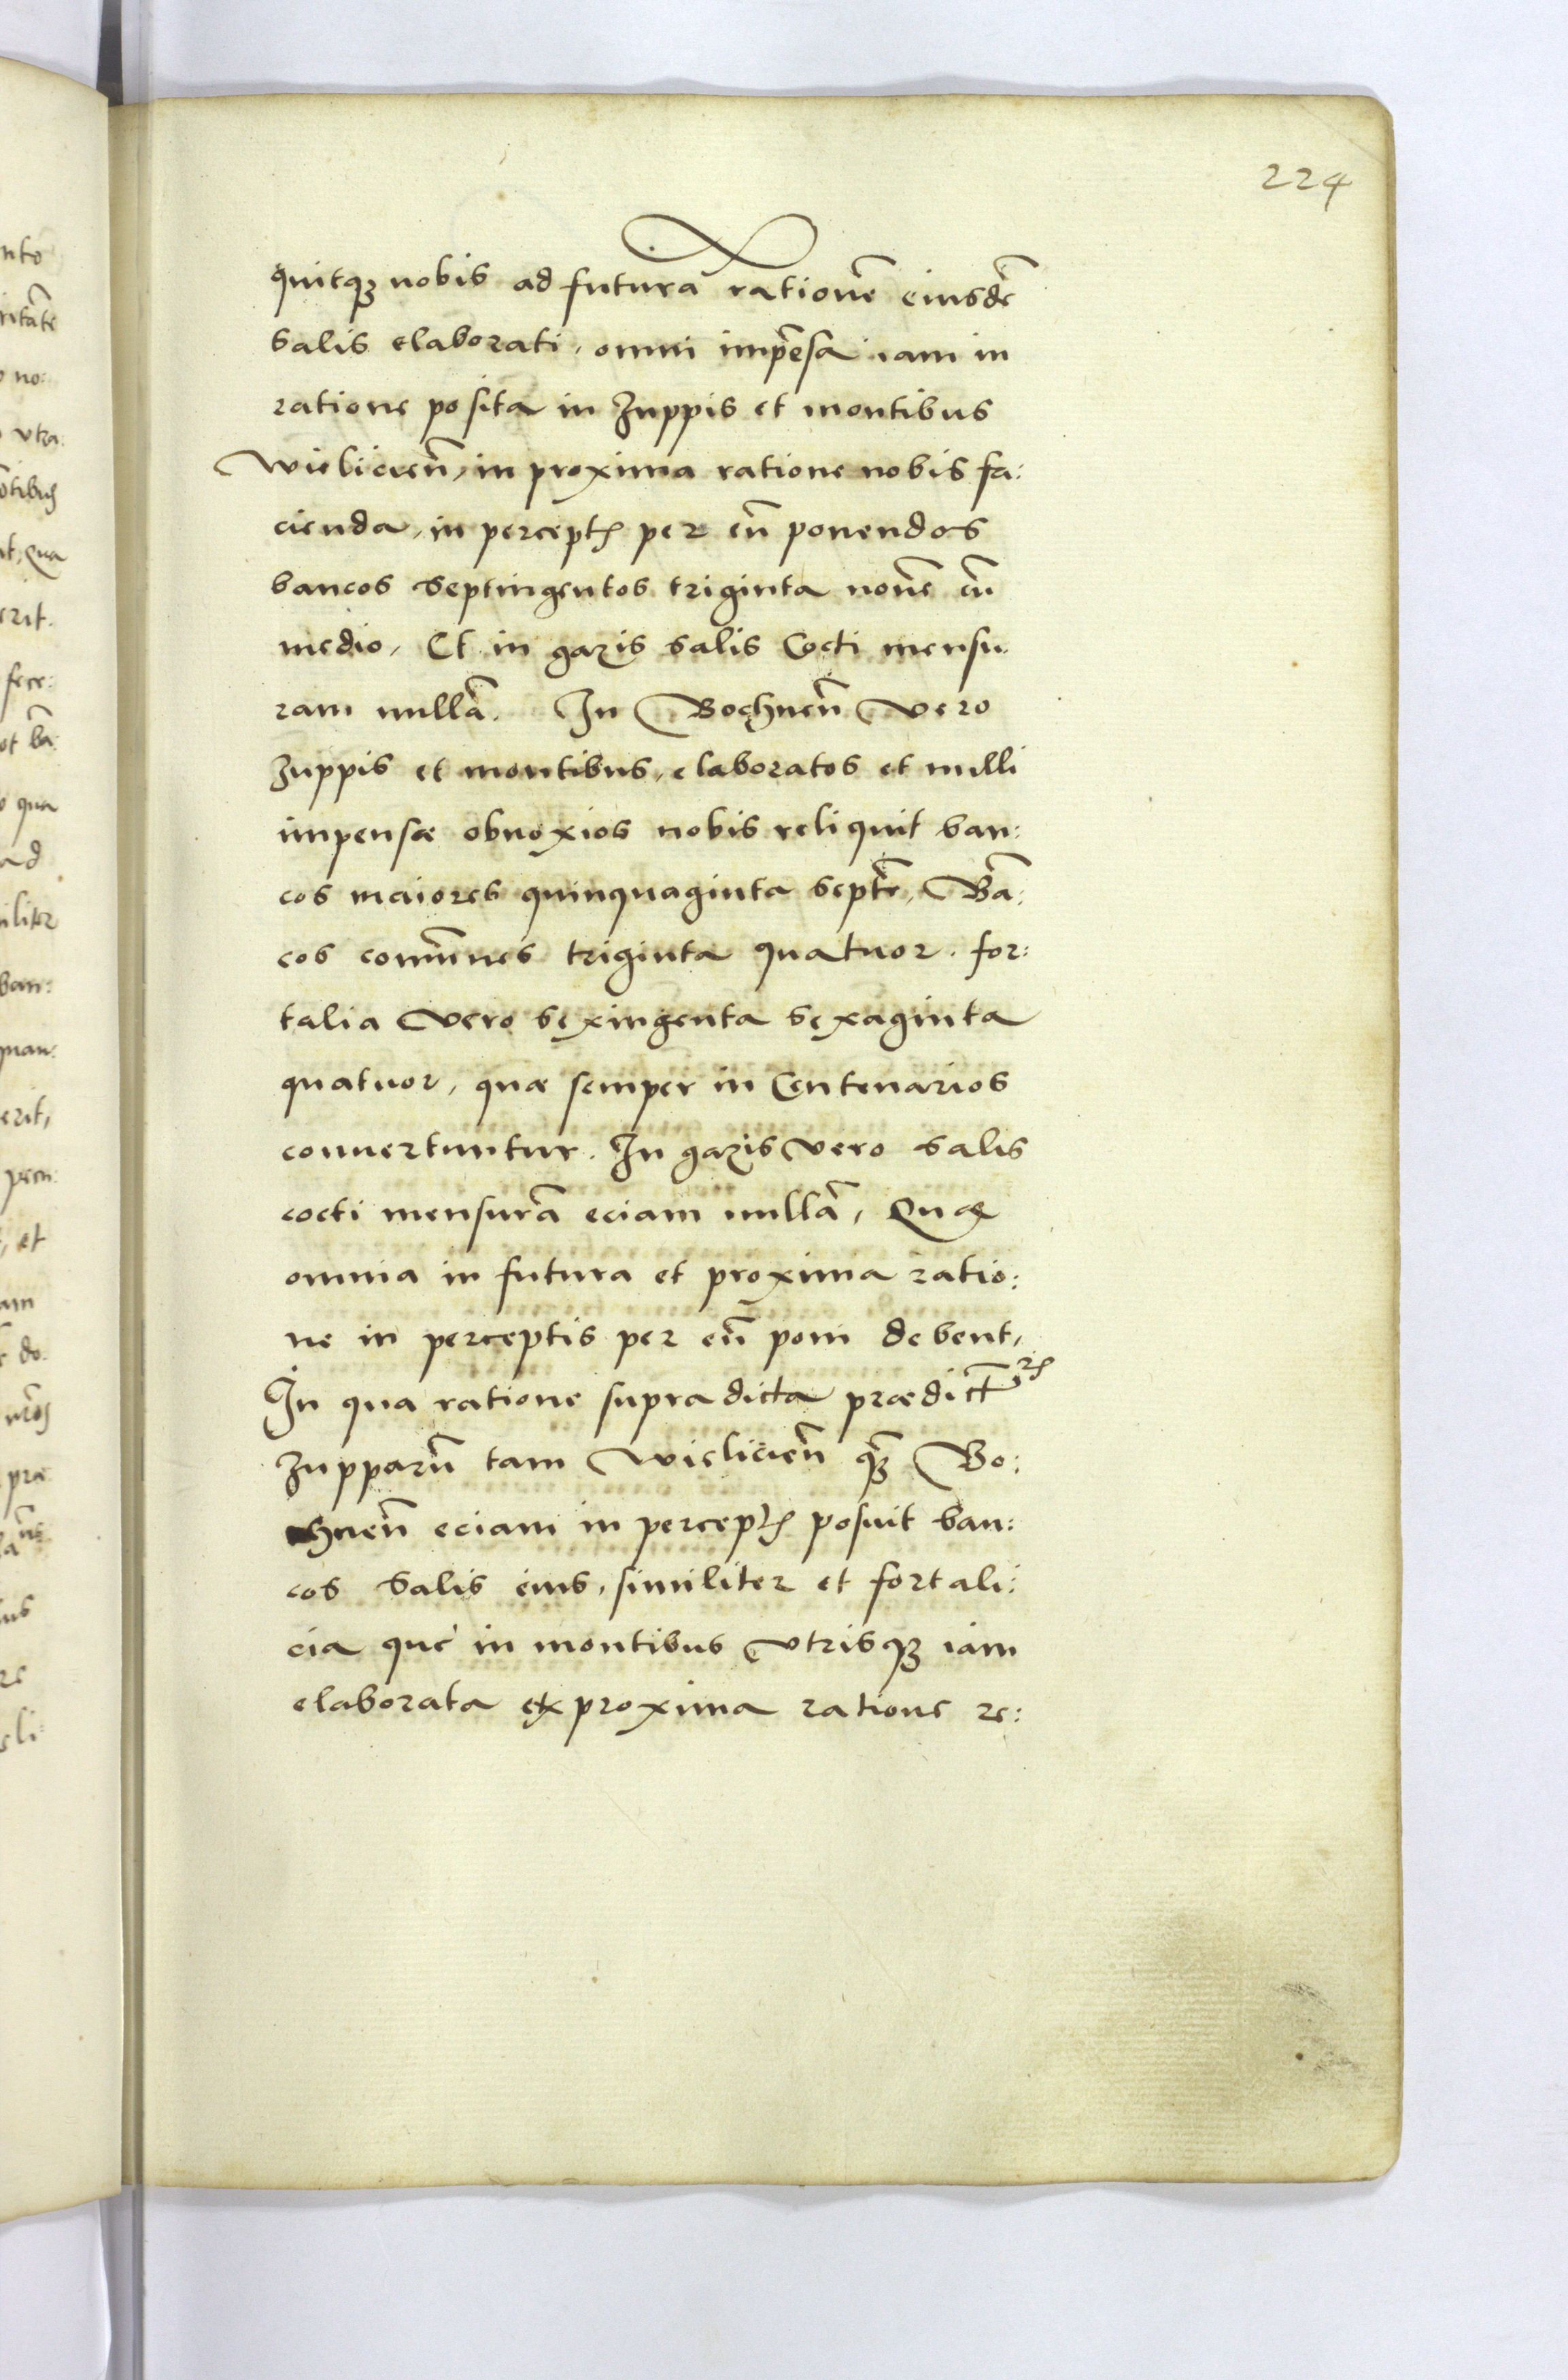 224
quitqꝫ nobis ad futurā rationē eiusdē
salis elaborati, omni impēsa iam in
ratione posita in zuppis et montibus
Wieliciēn, in proxima ratione nobis fa:
cienda, in perceptꝭ per eū ponendos
bancos septingentos triginta novē cū
medio, Et in gazis salis cocti mensu
ram nullā. In Bochnēn vero
zuppis et montibus, elaboratos et nulli
impensæ obnoxios nobis reliquit ban:
cos maiores quinquaginta septē, Bā:
cos comūnes triginta quatuor. for:
talia vero sexingenta sexaginta
quatuor, quæ semper in Centenarios
convertuntur. In gazis vero salis
cocti mensurā eciam nullā, Quæ
omnia in futura et proxima ratio:
ne in perceptis per eū poni debent,
In qua ratione supradicta prædictꝝ
zupparū tam Wieliciēn qꝫ̄ Bo:
chnēn eciam in perceptꝭ posuit ban:
cos salis eius, similiter et fortali:
cia quę in montibus vtrisqꝫ iam
elaborata ex proxima ratione re:
nto
ritatē
no:
vtra:
ōtibus
it, qua
erit.
fece:
ot bā:
qua
ad
iliter
ban:
quan:
erit,
pecu:
, et
am
do:
præ
us
re
eli: